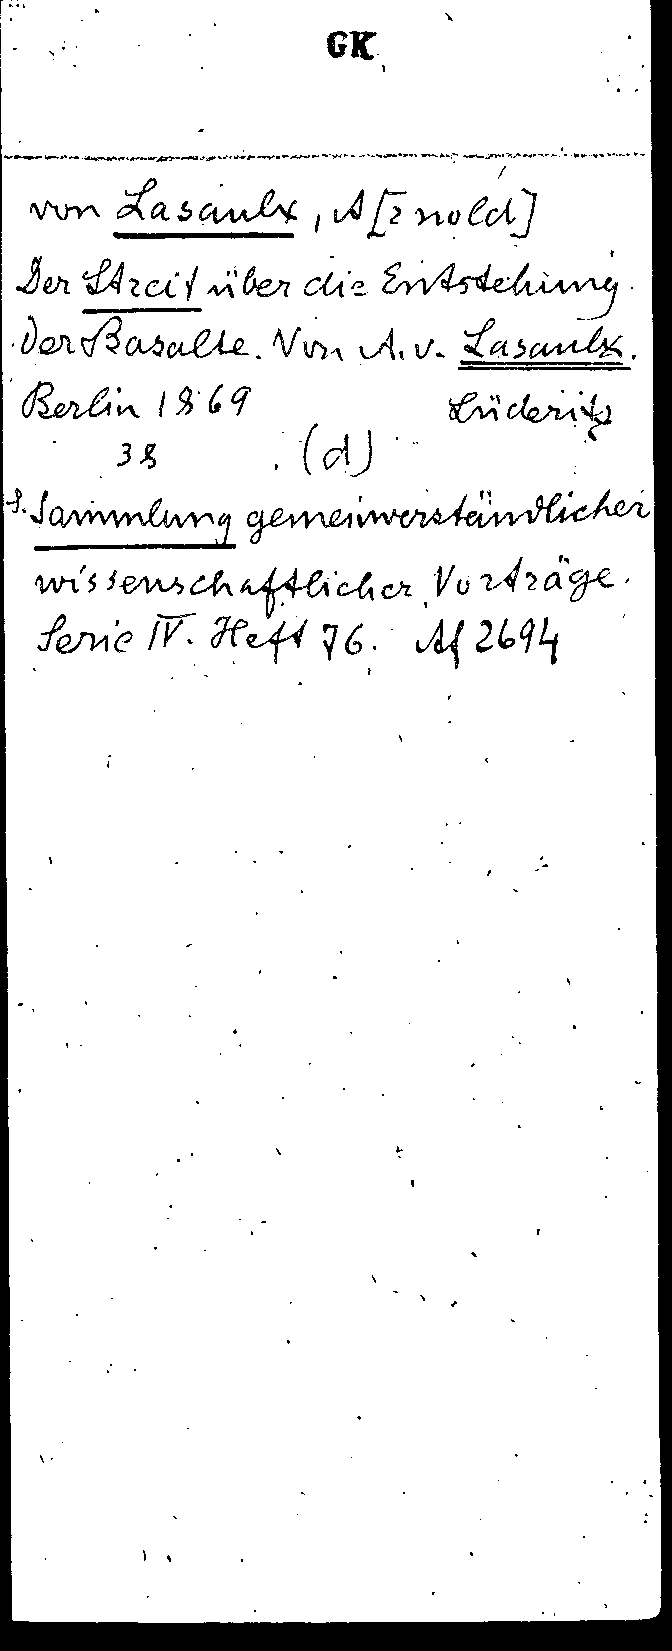 GK
von Lasaulx, A[rnold]
Der Streit über die Entstehung
der Basalte. Von A. v. Lasaulx.
Berlin 1869 Lüderitz
38 (d)
s. Sammlung gemeinverständlicher
wissenschaftlicher Vorträge.
Serie IV. Heft 76. Af 2694